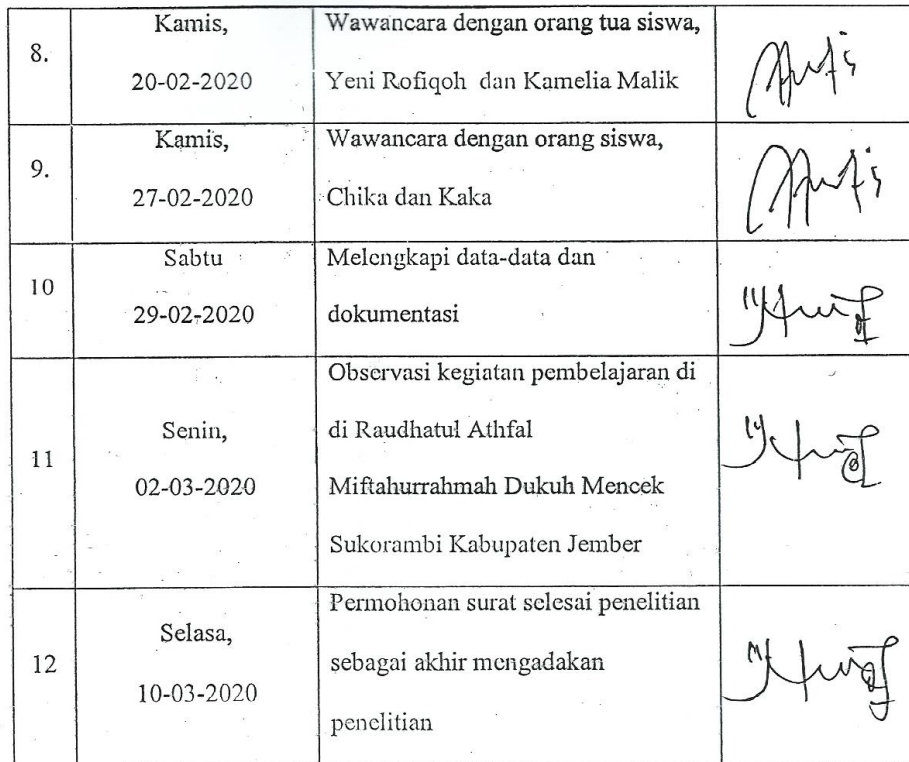 8.
Kamis,
20-02-2020
Wawancara dengan orang tua siswa,
Yeni Rofiqoh dan Kamelia Malik
9.
Kamis,
27-02-2020
Wawancara dengan orang siswa,
Chika dan Kaka
10
Sabtu
29-02-2020
Melengkapi data-data dan
dokumentasi
11
Senin,
02-03-2020
Observasi kegiatan pembelajaran di
di Raudhatul Athfal
Miftahurrahmah Dukuh Mencek
Sukorambi Kabupaten Jember
12
Selasa,
10-03-2020
Permohonan surat selesai penelitian
sebagai akhir mengadakan
penelitian